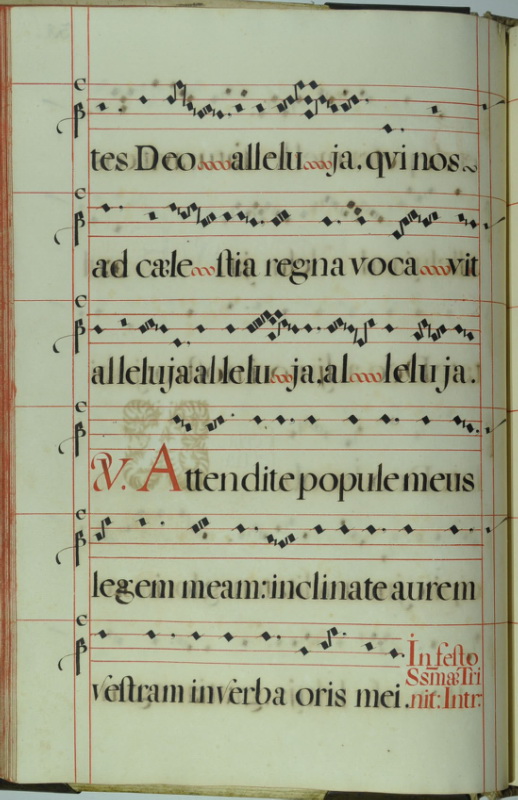 tes Deo allelu ja. qvi nos
ad cæle stia regna voca vit
alleluja allelu ja. al lelu ja.
V. Attendite popule meus
legem meam: inclinate aurem
vestram in verba oris mei. In festo
Ssmæ Tri
nit: Intr: